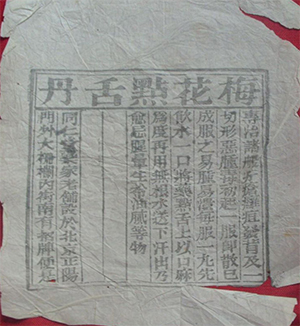 梅花點舌丹
專治諸般疔瘡疽背及一
切形惡腫毒初起一服即散已
成服之易膿易潰每服一丸先
飲水一口將藥舌上以口麻
為度再用無根水送下汗出乃
愈忌腥葷生冷油膩等物
同仁家老鋪設於北京正陽
門外大柵欄內路南有招牌便是